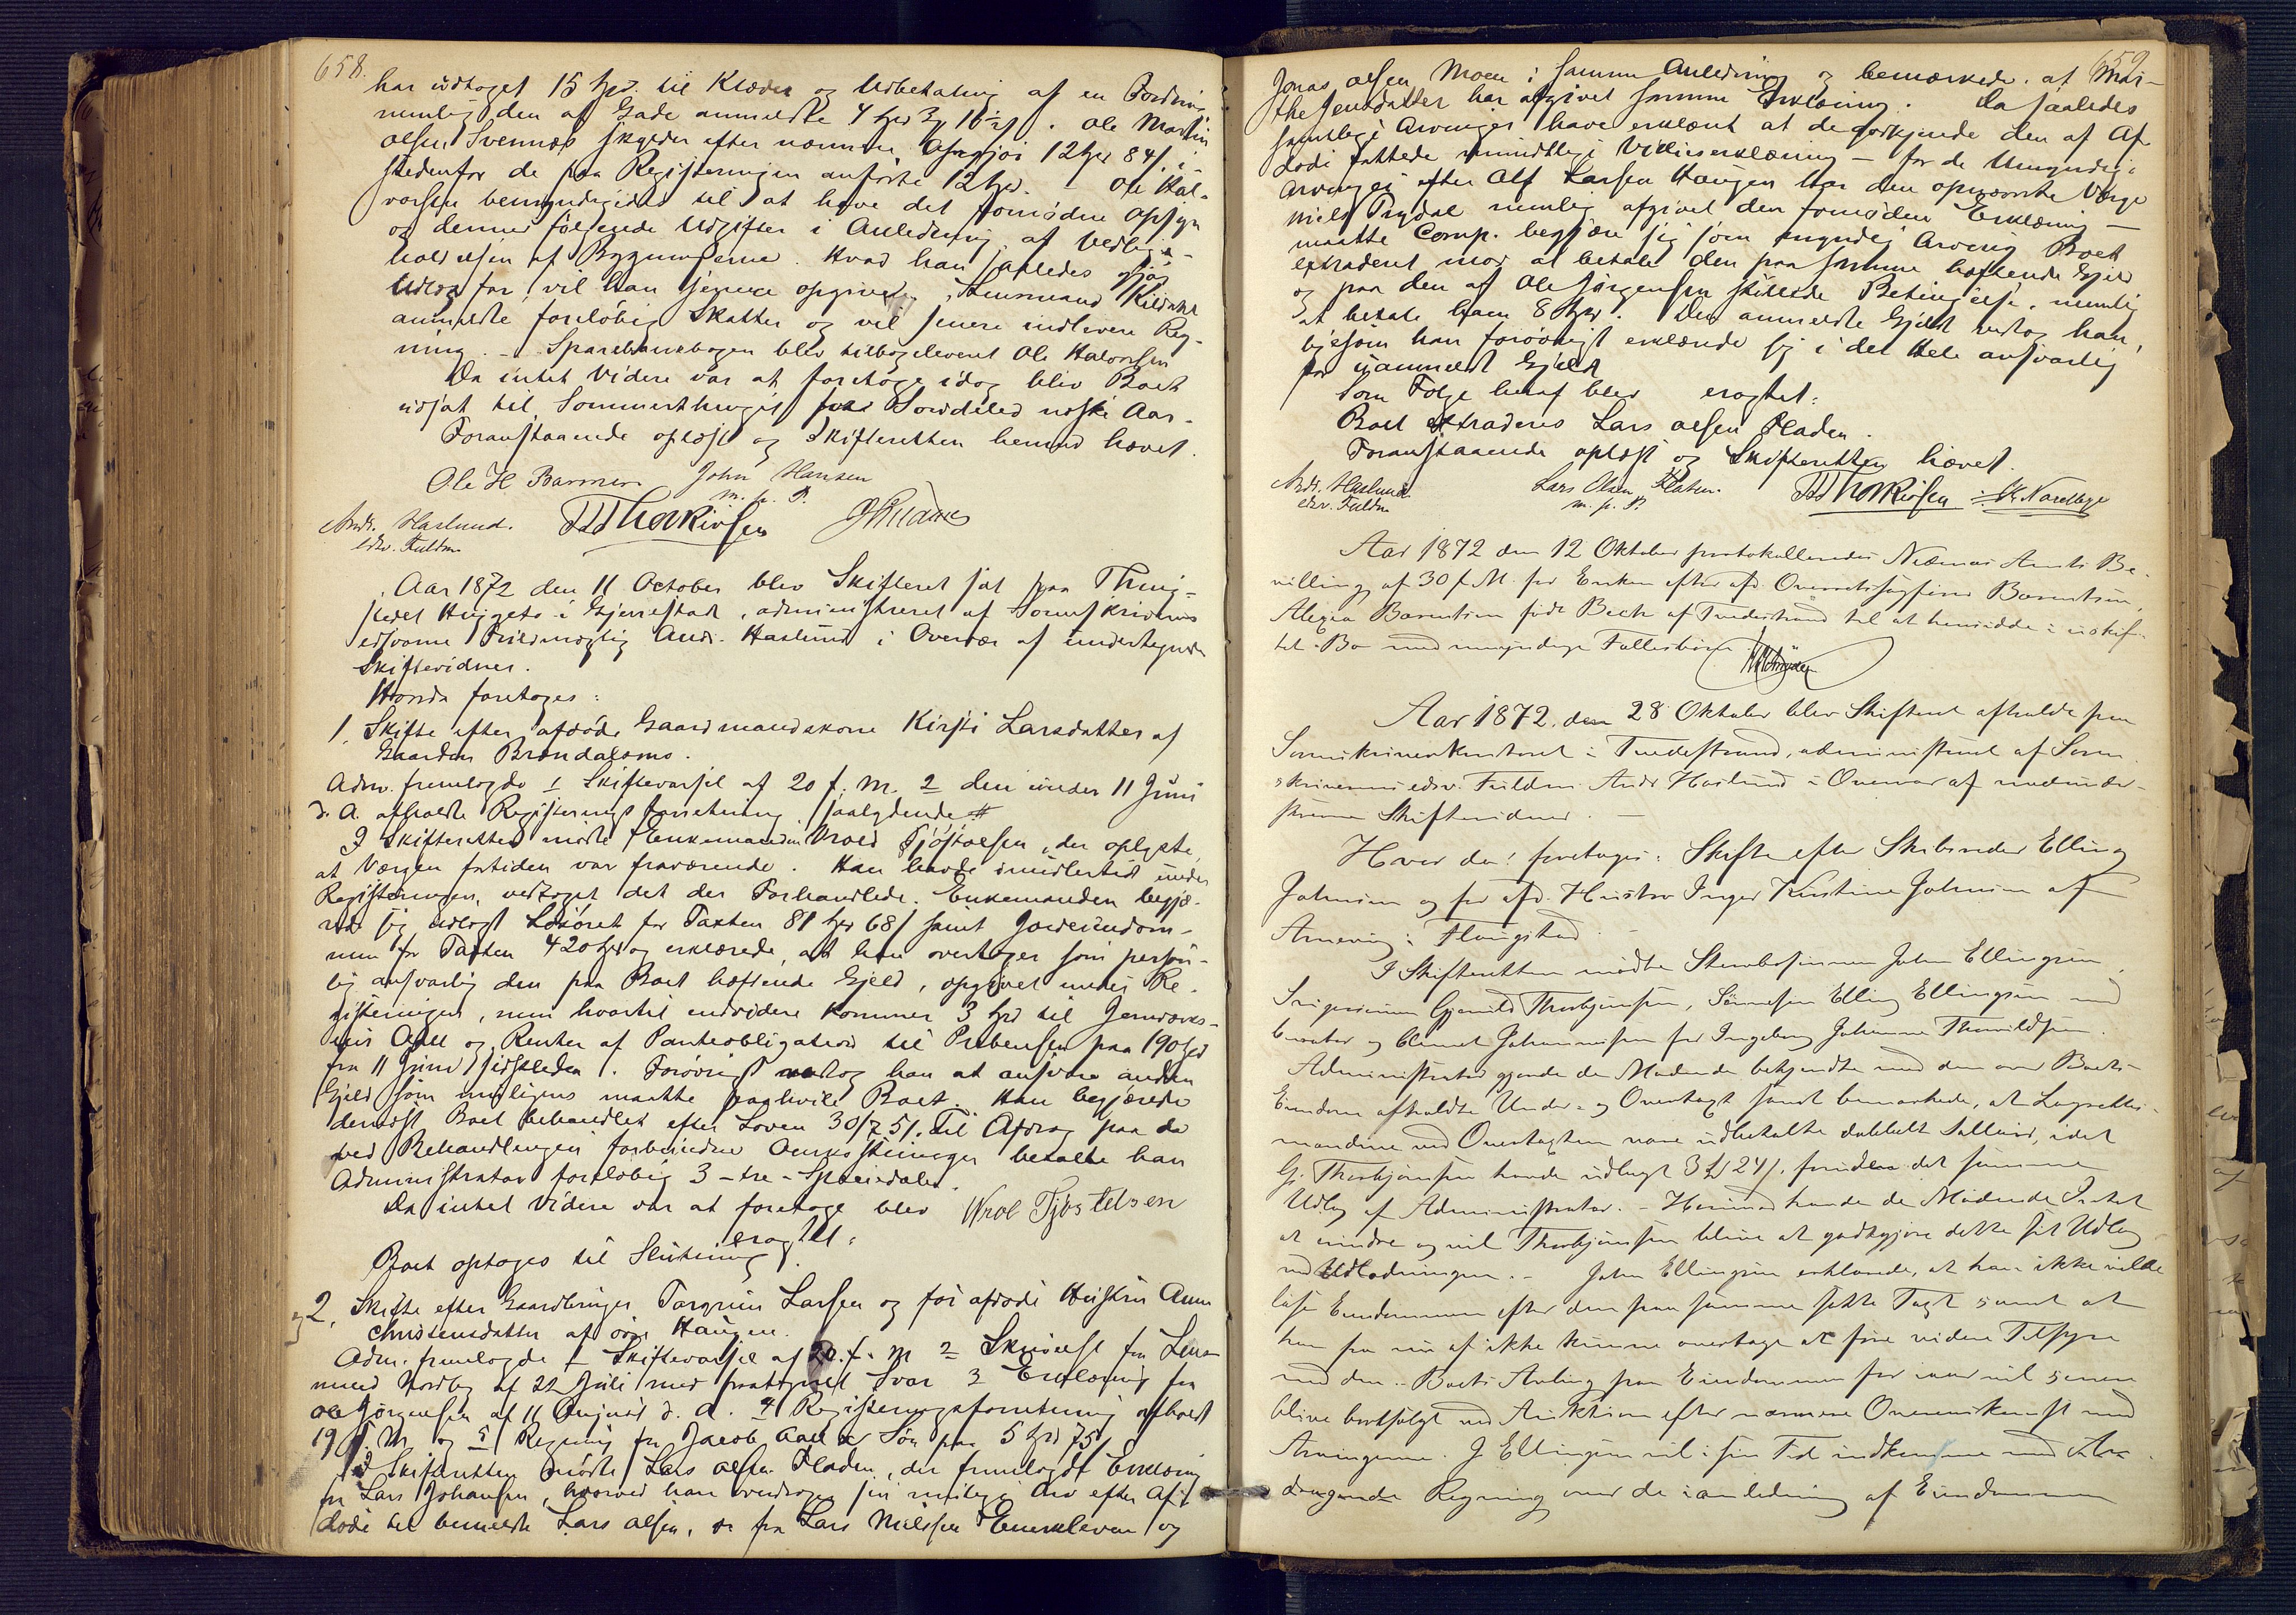 658.
har udtaget 15 Spd. til Klæder og Udbetaling af en Fordring
nemlig den af Gade anmeldte 4 Spd 3 16½ s. Ole Martin
Olsen Svennes skyder efter nærmere Opgjør 12 Spd 84 s. i
stedenfor de paa Registreringen anførte 12 Spd. – Ole Hal-
vorsen bemyndigedes til at have det fornødne Opsyn
og dermed følgende Udgifter i Anledning af Vedlige-
holdelsen af Bygningerne. Hvad han saaledes gjør
Udlæg for, vil han senere opgive.
anmeldte foreløbig Skatter og vil senere indlevere Reg-
ning. – Sparebankbogen blev tilbageleveret Ole Halvorsen
Da intet videre var at foretage idag blev Boet
udsat til Sommerthinget for Søndeled næste Aar.
Foranstaaende oplæst og Skifteretten hermed hævet.
Ole H. Barmen John Hansen
m. p. P.
Andr. Haslund.
edsv. Fuldm
Aar 1872 den 11 October blev Skifteret sat paa Thing-
stedet Huggets i Gjerrestad, administreret af Sorenskriverens
edsvorne Fuldmægtig Andr. Haslund i Overvær af undertegnede
Skiftevidner.
Hvorda foretoges:
1, Skifte efter afdøde Gaardmandskone Kirsti Larsdatter af
Gaarden Brøndalsmo.
Adm. fremlagde 1 Skiftevarsel af 20 f. M. 2 den under 11 Juni
d. A. afholdte Registreringsforretning saalydende #
I Skifteretten mødte Enkemanden Wrold Tjøstolsen, der oplyste,
at Værgen fortiden var fraværende. Han havde imidlertid under
Registreringen, vedtaget det der Forhandlede. Enkemanden begjæ-
rede sig udlagt Løsøret for Taxten 81 Spd 68 s samt Jordeiendom-
men for Taxten 420 Spd og erklærede, at han overtager som person-
lig ansvarlig den paa Boet hæftende Gjeld, opgivet under Re-
gistreringen, men hvortil endvidere kommer 3 Spd til Jernværks-
eier Aall og Renter af Panteobligation til Prebensen paa 190 Spd
fra 11 Juni sidstleden. Forøvrigt vedtog han at ansvare anden
Gjeld som muligens maatte paahvile Boet. Han begjærede
dernæst Boet behandlet efter Loven 30/7 51. Til Afdrag paa de
ved Behandlingen forbundne Omkostninger betalte han
Administrator foreløbig 3 – tre – Speciedaler.
Da intet videre var at foretage blev Wrol Tjøstelsen
eragtet:
Boet optages til Slutning.
og 2, Skifte efter Gaardbruger Torgrim Larsen og før afdøde Hustru Anne
Christensdatter af øvre Haugen.
Adm. fremlagde 1 Skiftevarsel af 20. f. M 2 Skrivelse fra Lens-
mand Nordby af 22 Juli med paategnet Svar 3 Erklæring fra
Ole Jørgensen af 11 August d. A. 4 Registreringsforretning afholdt
19 f. M og 5 Regning fra Jacob Aall & Søn paa 5 Spd 75 s.
I Skifteretten mødte Lars Olsen Pladen, der fremlagde Erklæring
fra Lars Johansen, hvorved han overdrager sin mulige Arv efter Af-
døde til bemeldte Lars Olsen, do fra Lars Nielsen og
659
Jonas Olsen Moen i samme Anledning og bemærkede at Mar-
the Jensdatter har afgivet samme Erklæring. Da saaledes
samtlige Arvinger have erklæret at de godkjende den af Af-
døde fattede mundtlige Villieserklæring – for de Umyndige
Arvinger efter Alf Larsen Haugen har den opnævnte Værge
Niels Prydal nemlig afgivet den fornødne Erklæring –
maatte Comp. begjære sig som myndig Arving Boet
extraderet mod at betale den paa samme hæftende Gjeld
og paa den af Ole Jørgensen stillede Betingelse, nemlig
at betale ham 8 Spd. Den anmeldte Gjeld vedtog han,
ligesom han forøvrigt erklærede sig i det Hele ansvarlig
for uanmeldt Gjeld
Som Følge heraf blev eragtet:
Boet extraderes Lars Olsen Pladen.
Foranstaaende oplæst og Skifteretten hævet.
Andr. Haslund. Lars Olsen Platen.
edsv. Fuldm m. p. P.
Aar 1872 den 12 Oktober protokolleredes Nedenæs Amts Be-
villing af 30 f. M. for Enken efter afd. Overretssagfører Barentsen,
Alexia Barentsen født Bech af Tvedestrand til at hensidde i uskif-
tet Bo med umyndige Fællesbørn.
Aar 1872, den 28 Oktober blev Skifteret afholdt paa
Sorenskriverkontoret i Tvedestrand, administreret af Soren
skriverens edsv. Fuldm. Andr Haslund i Overvær af medunder-
skrevne Skiftevidner. –
Hvor da foretages: Skifte efter Skibsreder Elling
Johnsen og før afd. Hustru Inger Kirstine Johnsen af
Arnevig i Flangstad. –
I Skifteretten mødte Stervbosønnen John Ellingsen,
Svigersønnen Gjeruld Thorbjørnsen, Sønnesøn Elling Ellingsen med
Curator og Clemet Johannesen for Ingeborg Johanne Thorvildsen.
Administrator gjorde de Mødende bekjendte med den over Boets
Eiendom afholdte Under- og Overtaxt samt bemærkede, at Laugrettes-
mændene ved Overtaxten vare udbetalte dobbelt Salær, idet
G. Thorbjørnsen havde udlagt 3 Spd 24 s. foruden det samme
Udlæg af Administrator. – Herimod havde de Mødende Intet
at erindre og vil Thorbjørnsen blive at godtgjøre dette sit Udlæg
ved Udlodningen. – John Ellingsen erklærede, at han ikke vilde
løse Eiendommen efter den paa samme satte Taxt samt at
han fra nu af ikke kunne overtage at føre videre Tilsyn
med den. – Boets Avling paa Eiendommen for iaar vil senere
blive bortsolgt ved Auktion efter nærmere Overenskomst med
Arvingerne. J Ellingsen vil i sin Tid indkomme med
dragende Regning over de i anledning af Eiendommen